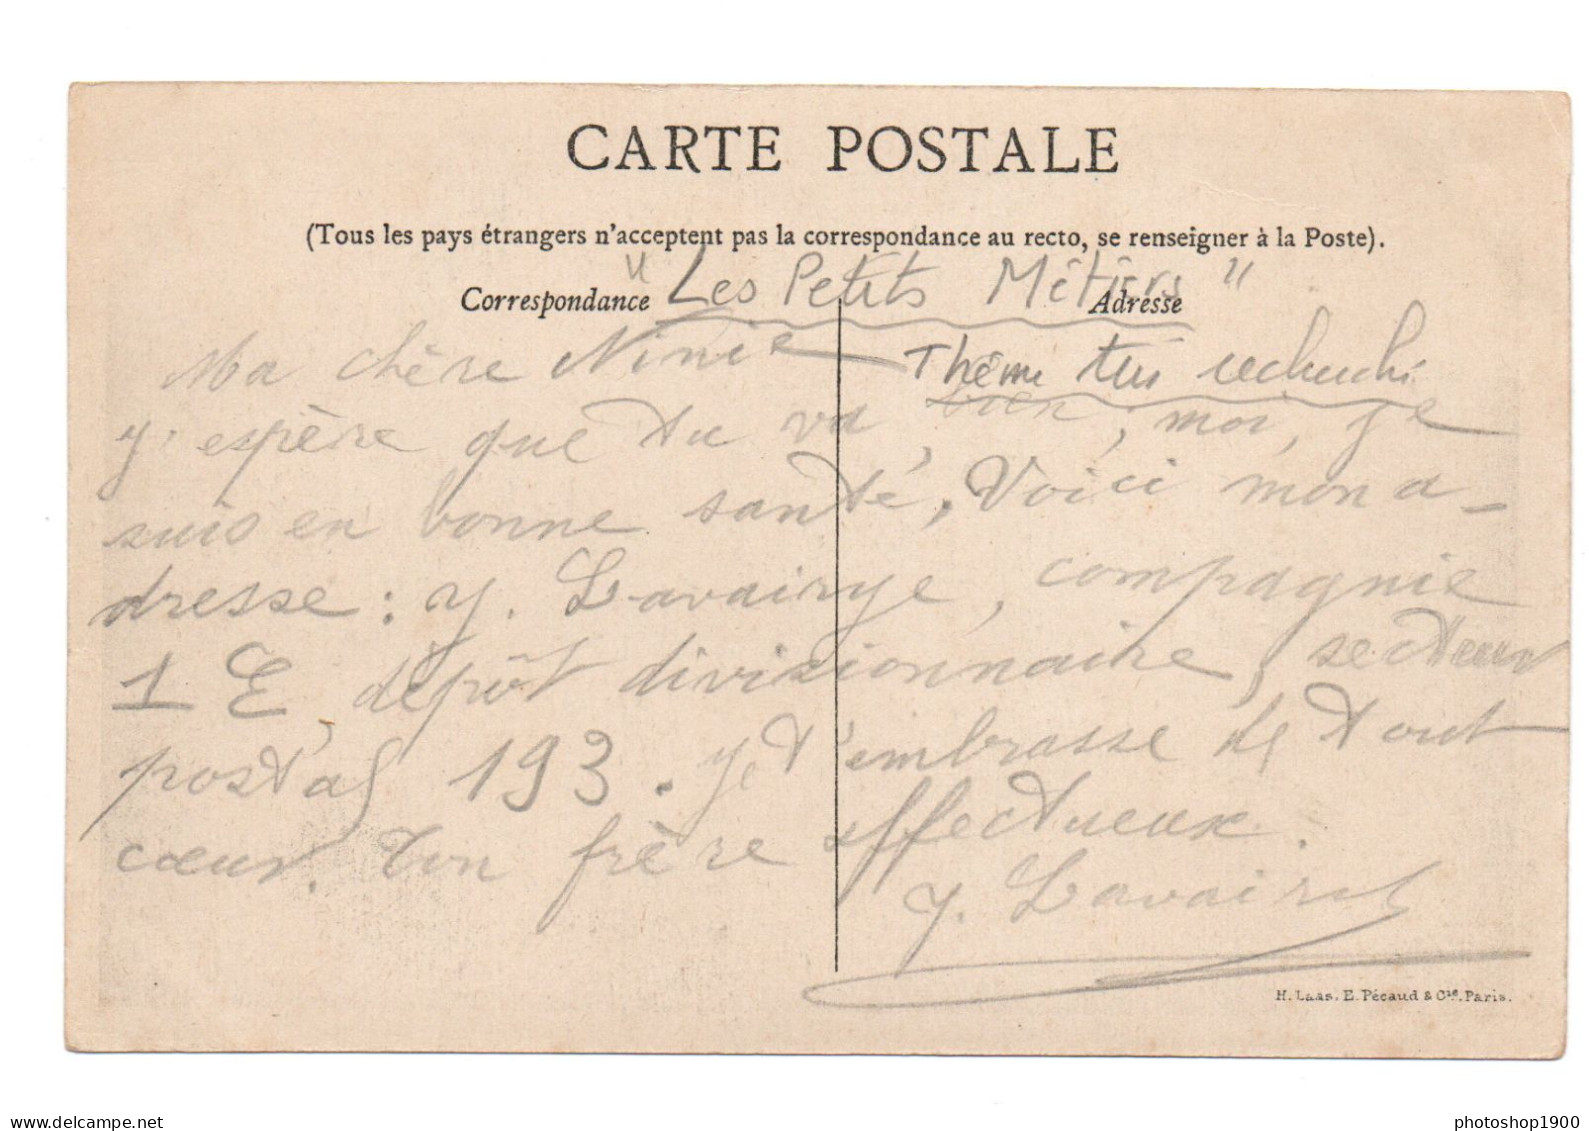 CARTE POSTALE
(Tous les pays étrangers n'acceptent pas la correspondance au recto, se renseigner à la Poste).
Correspondance "Les Petits Métiers" Adresse
Thème très recherché
Ma chère Ninie
J'espère que tu va bien, moi, je
suis en bonne santé, Voici mon a-
dresse : J. Lavairye, compagnie
1 E dépôt divisionnaire, secteur
postal 193. Je t'embrasse de tout
cœur. Ton frère affectueux.
J. Lavair
H. Laas, E. Pécaud & Cie, Paris.
photoshop1900